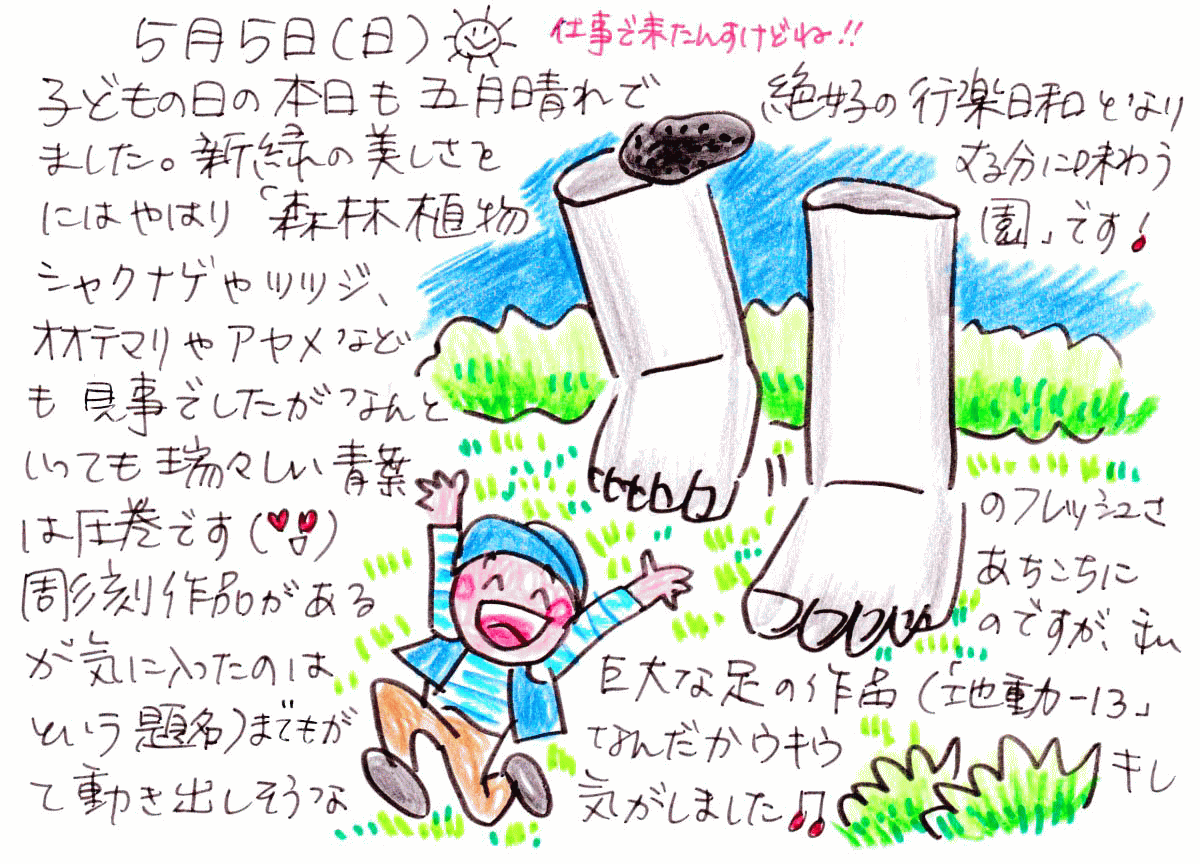 5月5日(日) 仕事で来たんすけどね!!
子どもの日の本日も五月晴れで 絶好の行楽日和となり
ました。新緑の美しさを 存分に味わう
にはやはり「森林植物 園」です!
シャクナゲやツツジ、
オオテマリやアヤメなど
も見事でしたがなんと
いっても瑞々しい青葉 のフレッシュさ
は圧巻です(♥□♥) あちこちに
彫刻作品がある のですが、私
が気に入ったのは 巨大な足の作品(「地動-13」
という題名)までもが なんだかウキウ キし
て動き出しそうな 気がしました♫